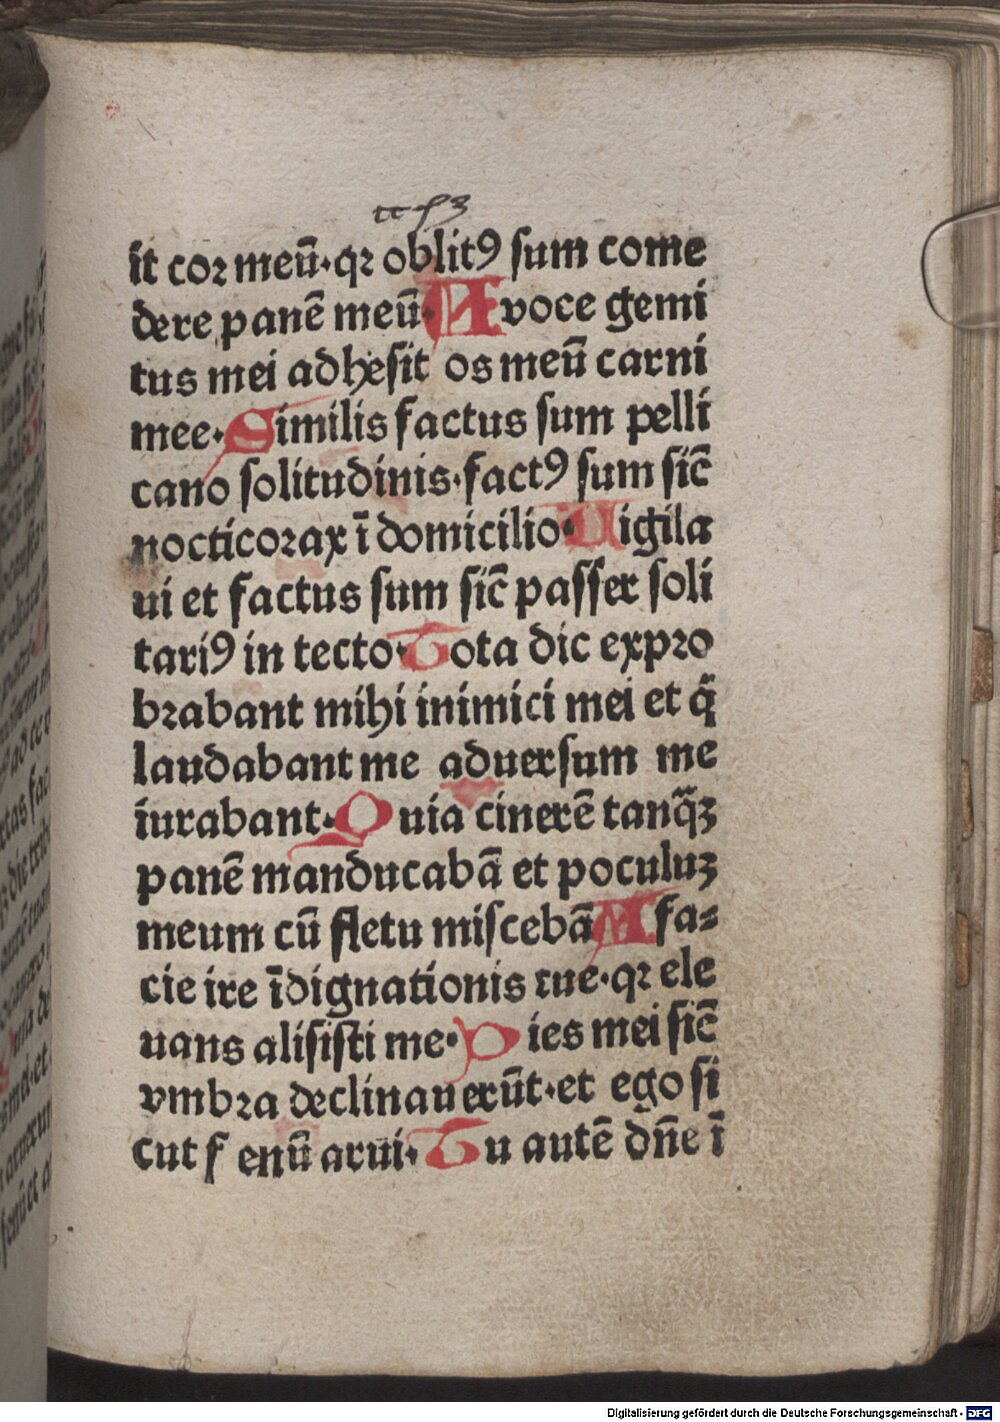 ccſ3
it cor meū·qꝛ oblitꝰ sum come
dere panē meū·A voce gemi
tus mei adhesit os meū carni
mee·Similis factus sum pelli
cano solitudinis·factꝰ sum sic̄
nocticorax ī domicilio·Uigila
ui et factus sum sic̄ passer soli
tariꝰ in tecto·Tota dic expro
brabant mihi inimici mei et q̄
laudabant me aduersum me
iurabant·Quia cinerē tanq̄ꝫ
panē manducabā et poculuꝫ
meum cū fletu miscebā A fa⸗
cie ire īdignationis tue·qꝛ ele
uans alisisti me·Dies mei sic̄
vmbra declinauerūt·et ego si
cut f enū arui·Tu autē dn̄e ī
Digitalisierung gefördert durch die Deutsche Forschungsgemeinschaft - DFG